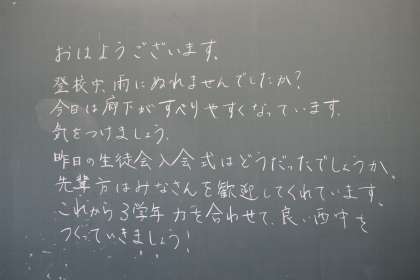 おはようございます。
登校中、雨にぬれませんでしたか?
今日は廊下がすべりやすくなっています。
気をつけましょう。
昨日の生徒会入会式はどうだったでしょうか。
先輩方はみなさんを歓迎してくれています。
これから3学年力を合わせて、良い西中を
つくっていきましょう!